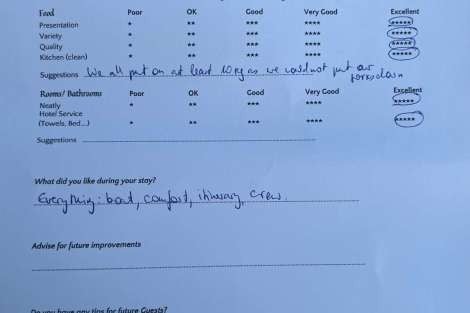 Food Poor OK Good Very Good Excellent
Presentation * ** *** **** *****
Variety * ** *** **** *****
Quality * ** *** **** *****
Kitchen (clean) * ** *** **** *****
Suggestions We all put on at least 10kg as we could not put our
forks down
Rooms/ Bathrooms Poor OK Good Very Good Excellent
Neatly * ** *** **** *****
Hotel Service
(Towels, Bed...) * ** *** **** *****
Suggestions
What did you like during your stay?
Everything: boat, comfort, itinerary, crew.
Advise for future improvements
Do you have any tips for future Guests?